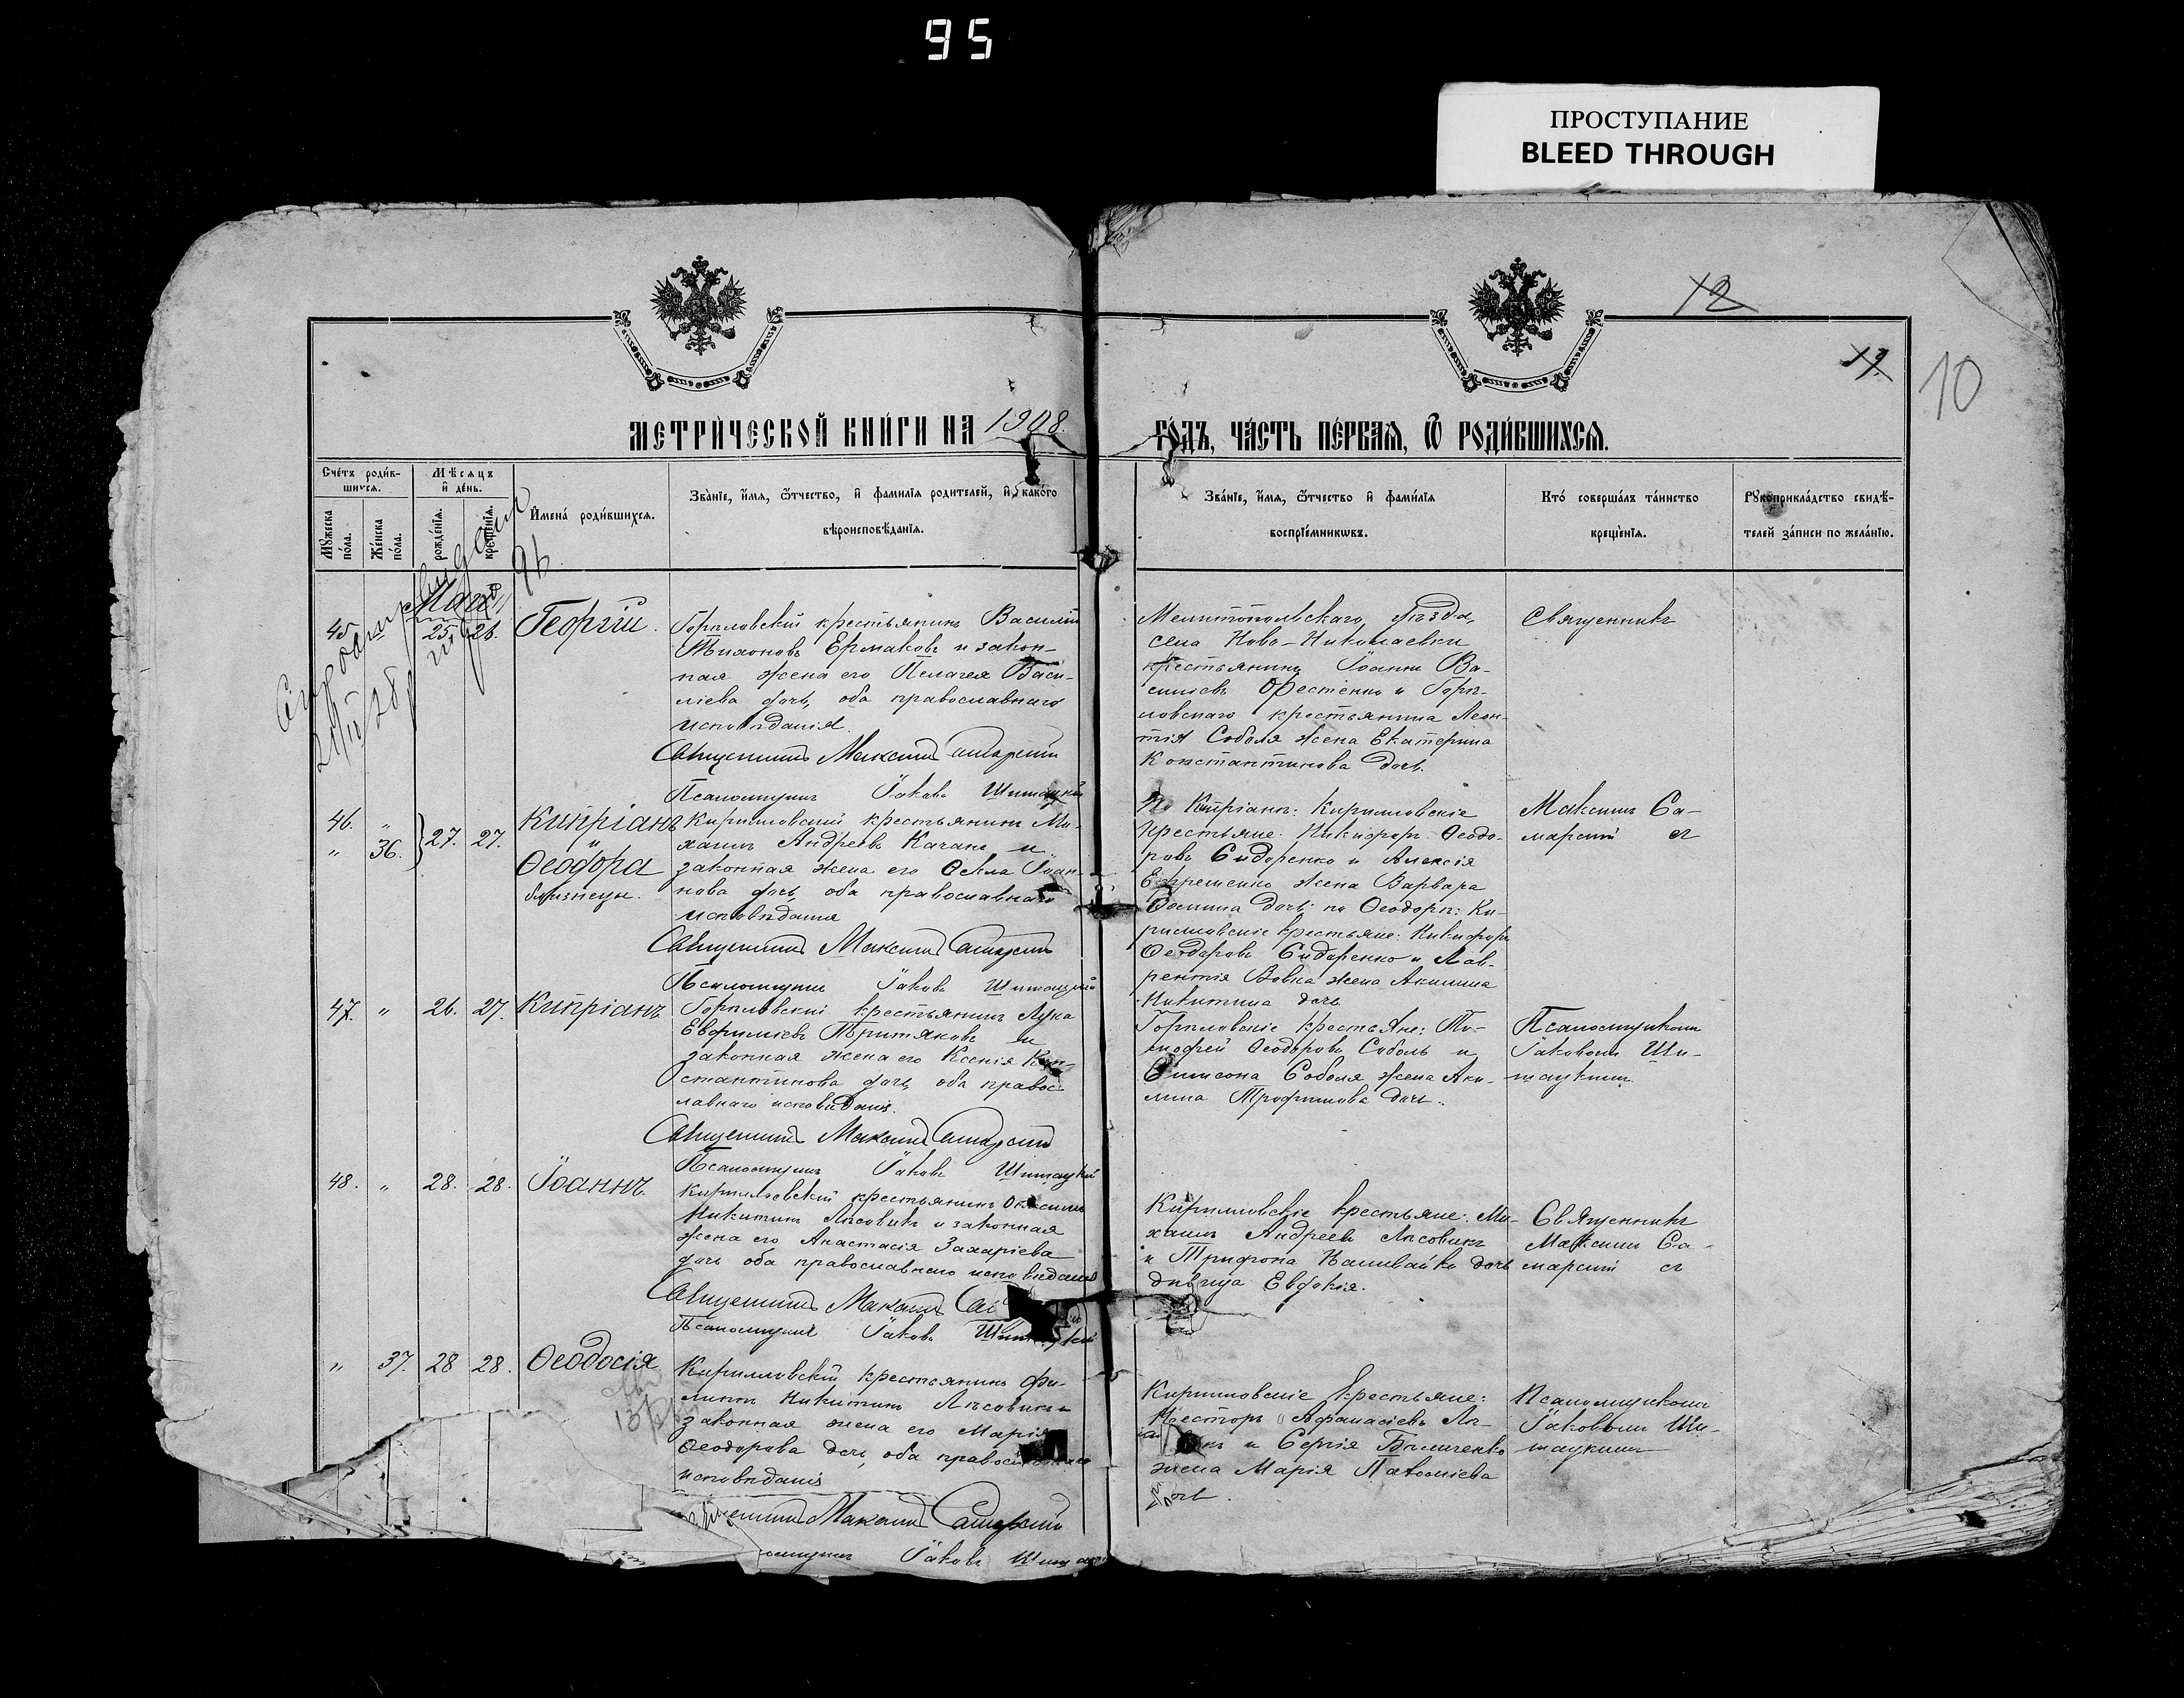 95
ПРОСТУПАНИЕ
BLEED THROUGH
12
10
МЕТРИЧЕСКОЙ КНИГИ НА 1908.
ГОДЪ, ЧАСТЬ ПЕРВАЯ, Ѡ РОДИВШИХСЯ.
Счетъ родив-
шихся.
Мѣсяцъ
и день.
Мужеска
пола.
Женска
пола.
рожденія.
крещенія.
Имена родившихся.
Званіе, имя, ѿтчество, и фамилія родителей, и какого
вѣроисповѣданія.
Званіе, имя, ѿтчество и фамилія
воспріемникѡвъ.
Кто совершалъ таинство
крещенія.
Рукоприкладство свидѣ-
телей записи по желанію.
45 25. 26. Георгій.
Горѣловскій крестьянинъ Василій
Тихоновъ Ермаковъ и закон-
ная жена его Пелагея Васи-
ліева дочь, оба православнаго
исповѣданія.
Священникъ Максимъ Самарскій
Псаломщикъ Іаковъ
Мелитопольскаго уѣзда,
села Ново-Николаевки
крестьянинъ Іоаннъ Ва-
силіевъ и Горѣ-
ловскаго крестьянина Леон-
тія Соболя жена Екатерина
Константинова дочь.
Священникъ
46. " 27. 27. Кипріанъ
" 36. и
Ѳеодора
близнецы.
Кирилловскій крестьянинъ Ми-
хаилъ Андреевъ Качанъ и
законная жена его Ѳекла Іоан-
нова дочь, оба православнаго
исповѣданія
Священникъ Максимъ Самарскій
Псаломщикъ Іаковъ
Кипріана: Кирилловскіе
крестьяне: Никифоръ Ѳеодо-
ровъ Сидоренко и Алексія
Ефременко жена Варвара
Ѳомина дочь; по Ѳеодорѣ: Ки-
рилловскіе крестьяне: Никифоръ
Ѳеодоровъ Сидоренко и Лав-
рентія Вовка жена Акилина
Никитина дочь
Максимъ Са-
марскій съ
47. " 26. 27. Кипріанъ
Горѣловскій крестьянинъ Лука
Евфиміевъ Притяковъ и
законная жена его Ксенія Кон-
стантинова дочь, оба правос-
лавнаго исповѣданія.
Священникъ Максимъ Самарскій
Псаломщикъ Іаковъ
Горѣловскіе крестьяне: Ти-
моѳей Ѳеодоровъ Соболь и
Симеона Соболя жена Аки-
лина Трофимова дочь.
Псаломщикомъ
Іаковомъ
48. " 28. 28. Іоаннъ.
Кирилловскій крестьянинъ
Никитинъ Лисовикъ и законная
жена его Анастасія Захаріева
дочь оба православнаго исповѣданія
Священникъ Максимъ
Псаломщикъ Іаковъ
Кирилловскіе крестьяне: Ми-
хаилъ Андреевъ Лисовикъ
и Трифона Наливайко дочь
дѣвица Евдокія.
Священникъ
Максимъ Са-
марскій съ
" 37. 28 28. Ѳеодосія
Кирилловскій крестьянинъ Фи-
липпъ Никитинъ Лисовикъ и
законная жена его Марія
Ѳеодорова дочь, оба православнаго
исповѣданія
Максимъ Самарскій
Іаковъ
Кирилловскіе крестьяне:
Несторъ Аѳанасіевъ
и Сергія
жена Марія
Псаломщикомъ
Іаковомъ